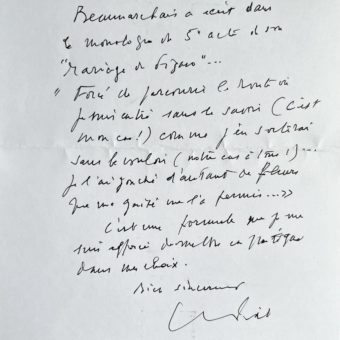 Beaumarchais a écrit dans
le monologue du 5e acte de son
"Mariage de Figaro"...
"Forcé de parcourir la route où
je suis entré sans le savoir (c'est
mon cas !) comme j'en sortirai
sans le vouloir (notre cas à tous !)...
je l'ai jonchée d'autant de fleurs
que ma gaité me l'a permis...»
C'est une formule que je me
suis efforcé de mettre en pratique
dans mes choix.
Bien sincèrement